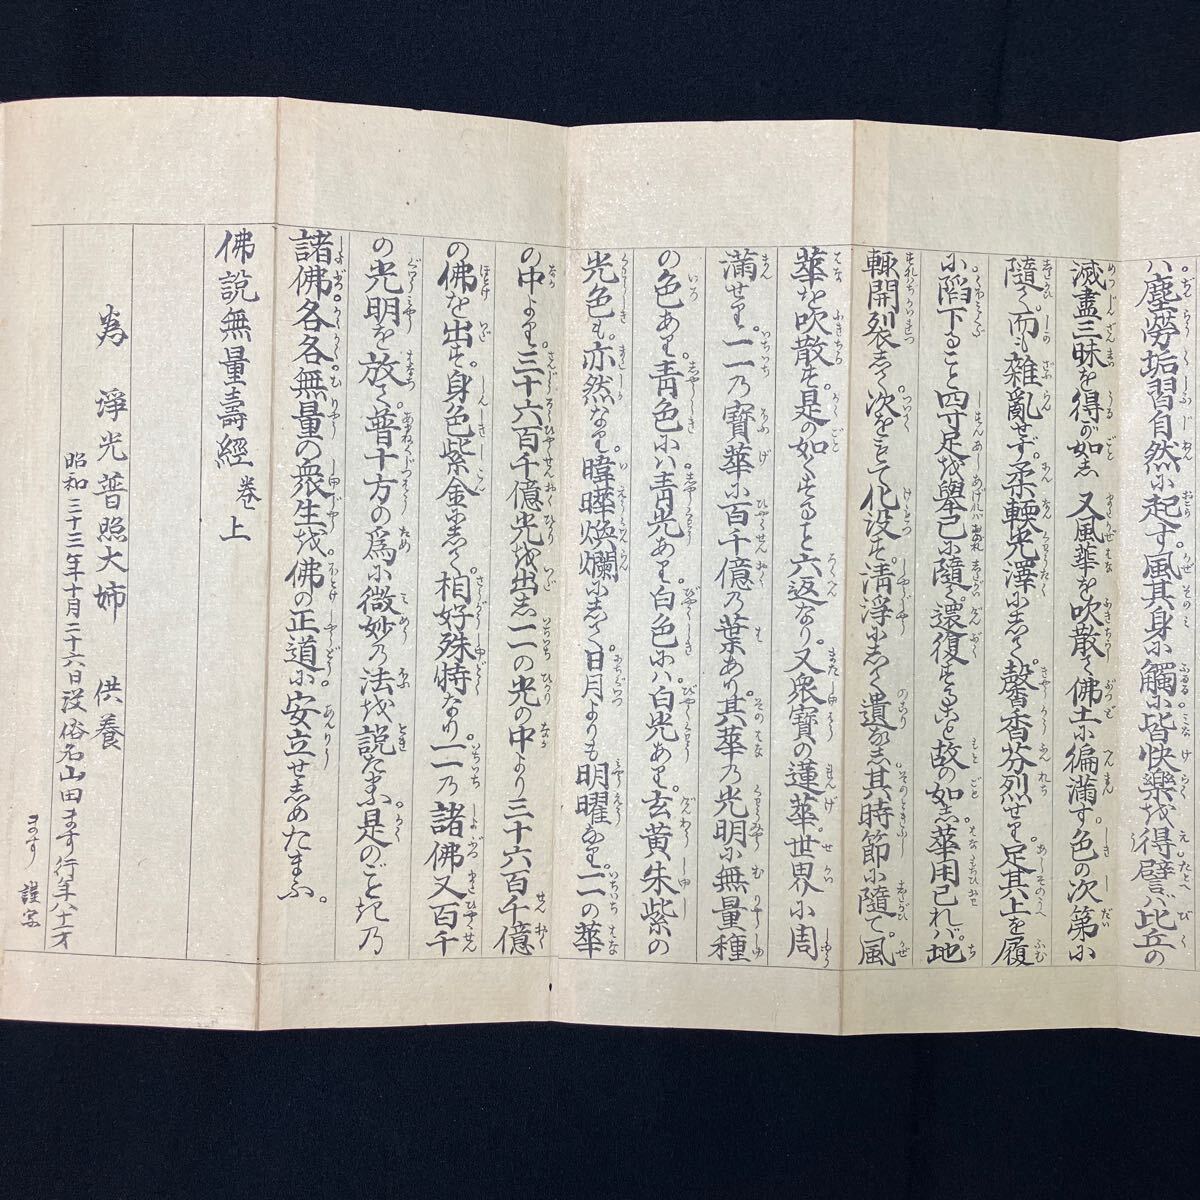 ハ塵勞垢習自然小起す風其身小觸小皆快樂を得譬バ比丘の
滅盡三昧を得が如志 又風華を吹散く佛土小徧滿す色の次第小
隨く而も雜亂せず柔輭光澤小志く馨香芬烈せり足其上を履
小陷下ること四寸足を擧已小隨く還復することの故の如志華用已れバ地
輙開裂志く次をもて化沒す淸淨小志く遺なし其時節小隨て風
華を吹散す是の如くすること六返なり又衆寶の蓮華世界小周
滿せり一一乃寶華小百千億乃葉あり其華乃光明小無量種
の色あり靑色小ハ靑光あり白色小ハ白光あり玄黃朱紫の
光色も亦然なり暐曄煥爛小志く日月よりも明曜なり一一の華
の中より三十六百千億光を出志一一の光の中より三十六百千億
の佛を出す身色紫金小志く相好殊特なり一一乃諸佛又百千
の光明を放く普十方の爲小微妙乃法を說たまふ是のごとき乃
諸佛各各無量の衆生を佛の正道小安立せ志めたまふ。
佛說無量壽經 卷上
為 淨光普照大姉 供養
昭和三十三年十月二十六日沒 俗名山田ます行年八十一才
ます 謹寫